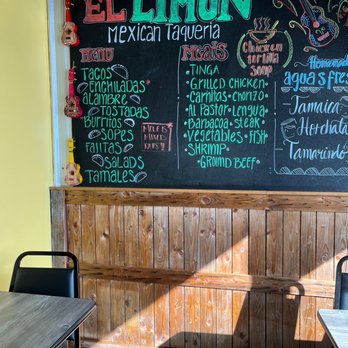 EL LIMON
Mexican Taqueria
MENU
TACOS
ENCHILADAS
ALAMBRE
TOSTADAS
BURRITOS
SOPES
FAJITAS
SALADS
TAMALES
MEATS
•TINGA
•GRILLED CHICKEN•
•Carnitas•CHORIZO•
•AL PASTOR•Lengua•
•Barbacoa•Steak•
•Vegetables•FISH
SHRIMP•
•GROUND BEEF•
Chicken
tortilla
Soup
Homemade
aguas fres
Jamaica
Horchata
Tamarindo